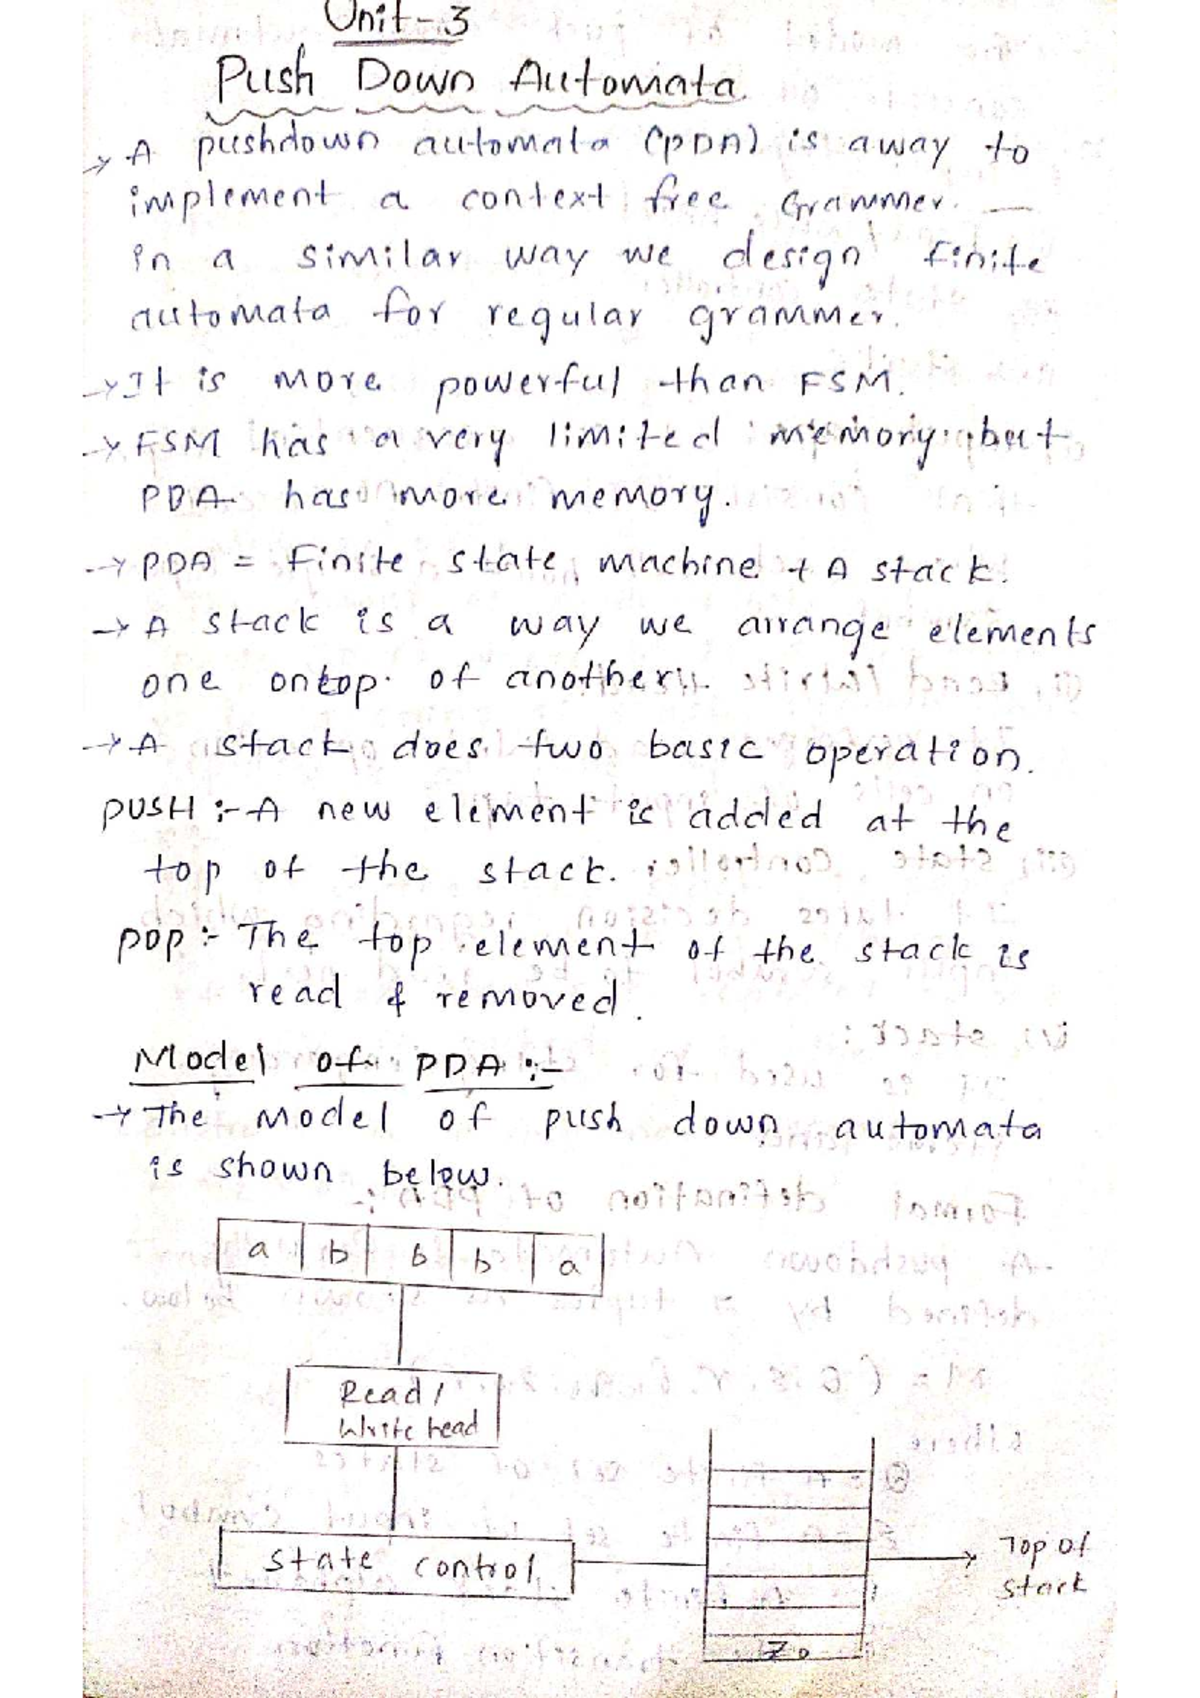 Unit-3
Push Down Automata
→ A pushdown automata (PDA) is away to
implement a context free Grammer.
in a similar way we design finite
automata for regular grammer.
→ It is more powerful than FSM.
→ FSM has a very limited memory but
PDA has more memory.
→ PDA = Finite state machine + A stack.
→ A stack is a way we arrange elements
one ontop of another.
→ A stack does two basic operation.
PUSH :- A new element is added at the
top of the stack.
pop :- The top element of the stack is
read & removed.
Model of PDA :-
→ The model of push down automata
is shown below.
a b b b a
Read /
White head
state control
Top of
stack
Z0